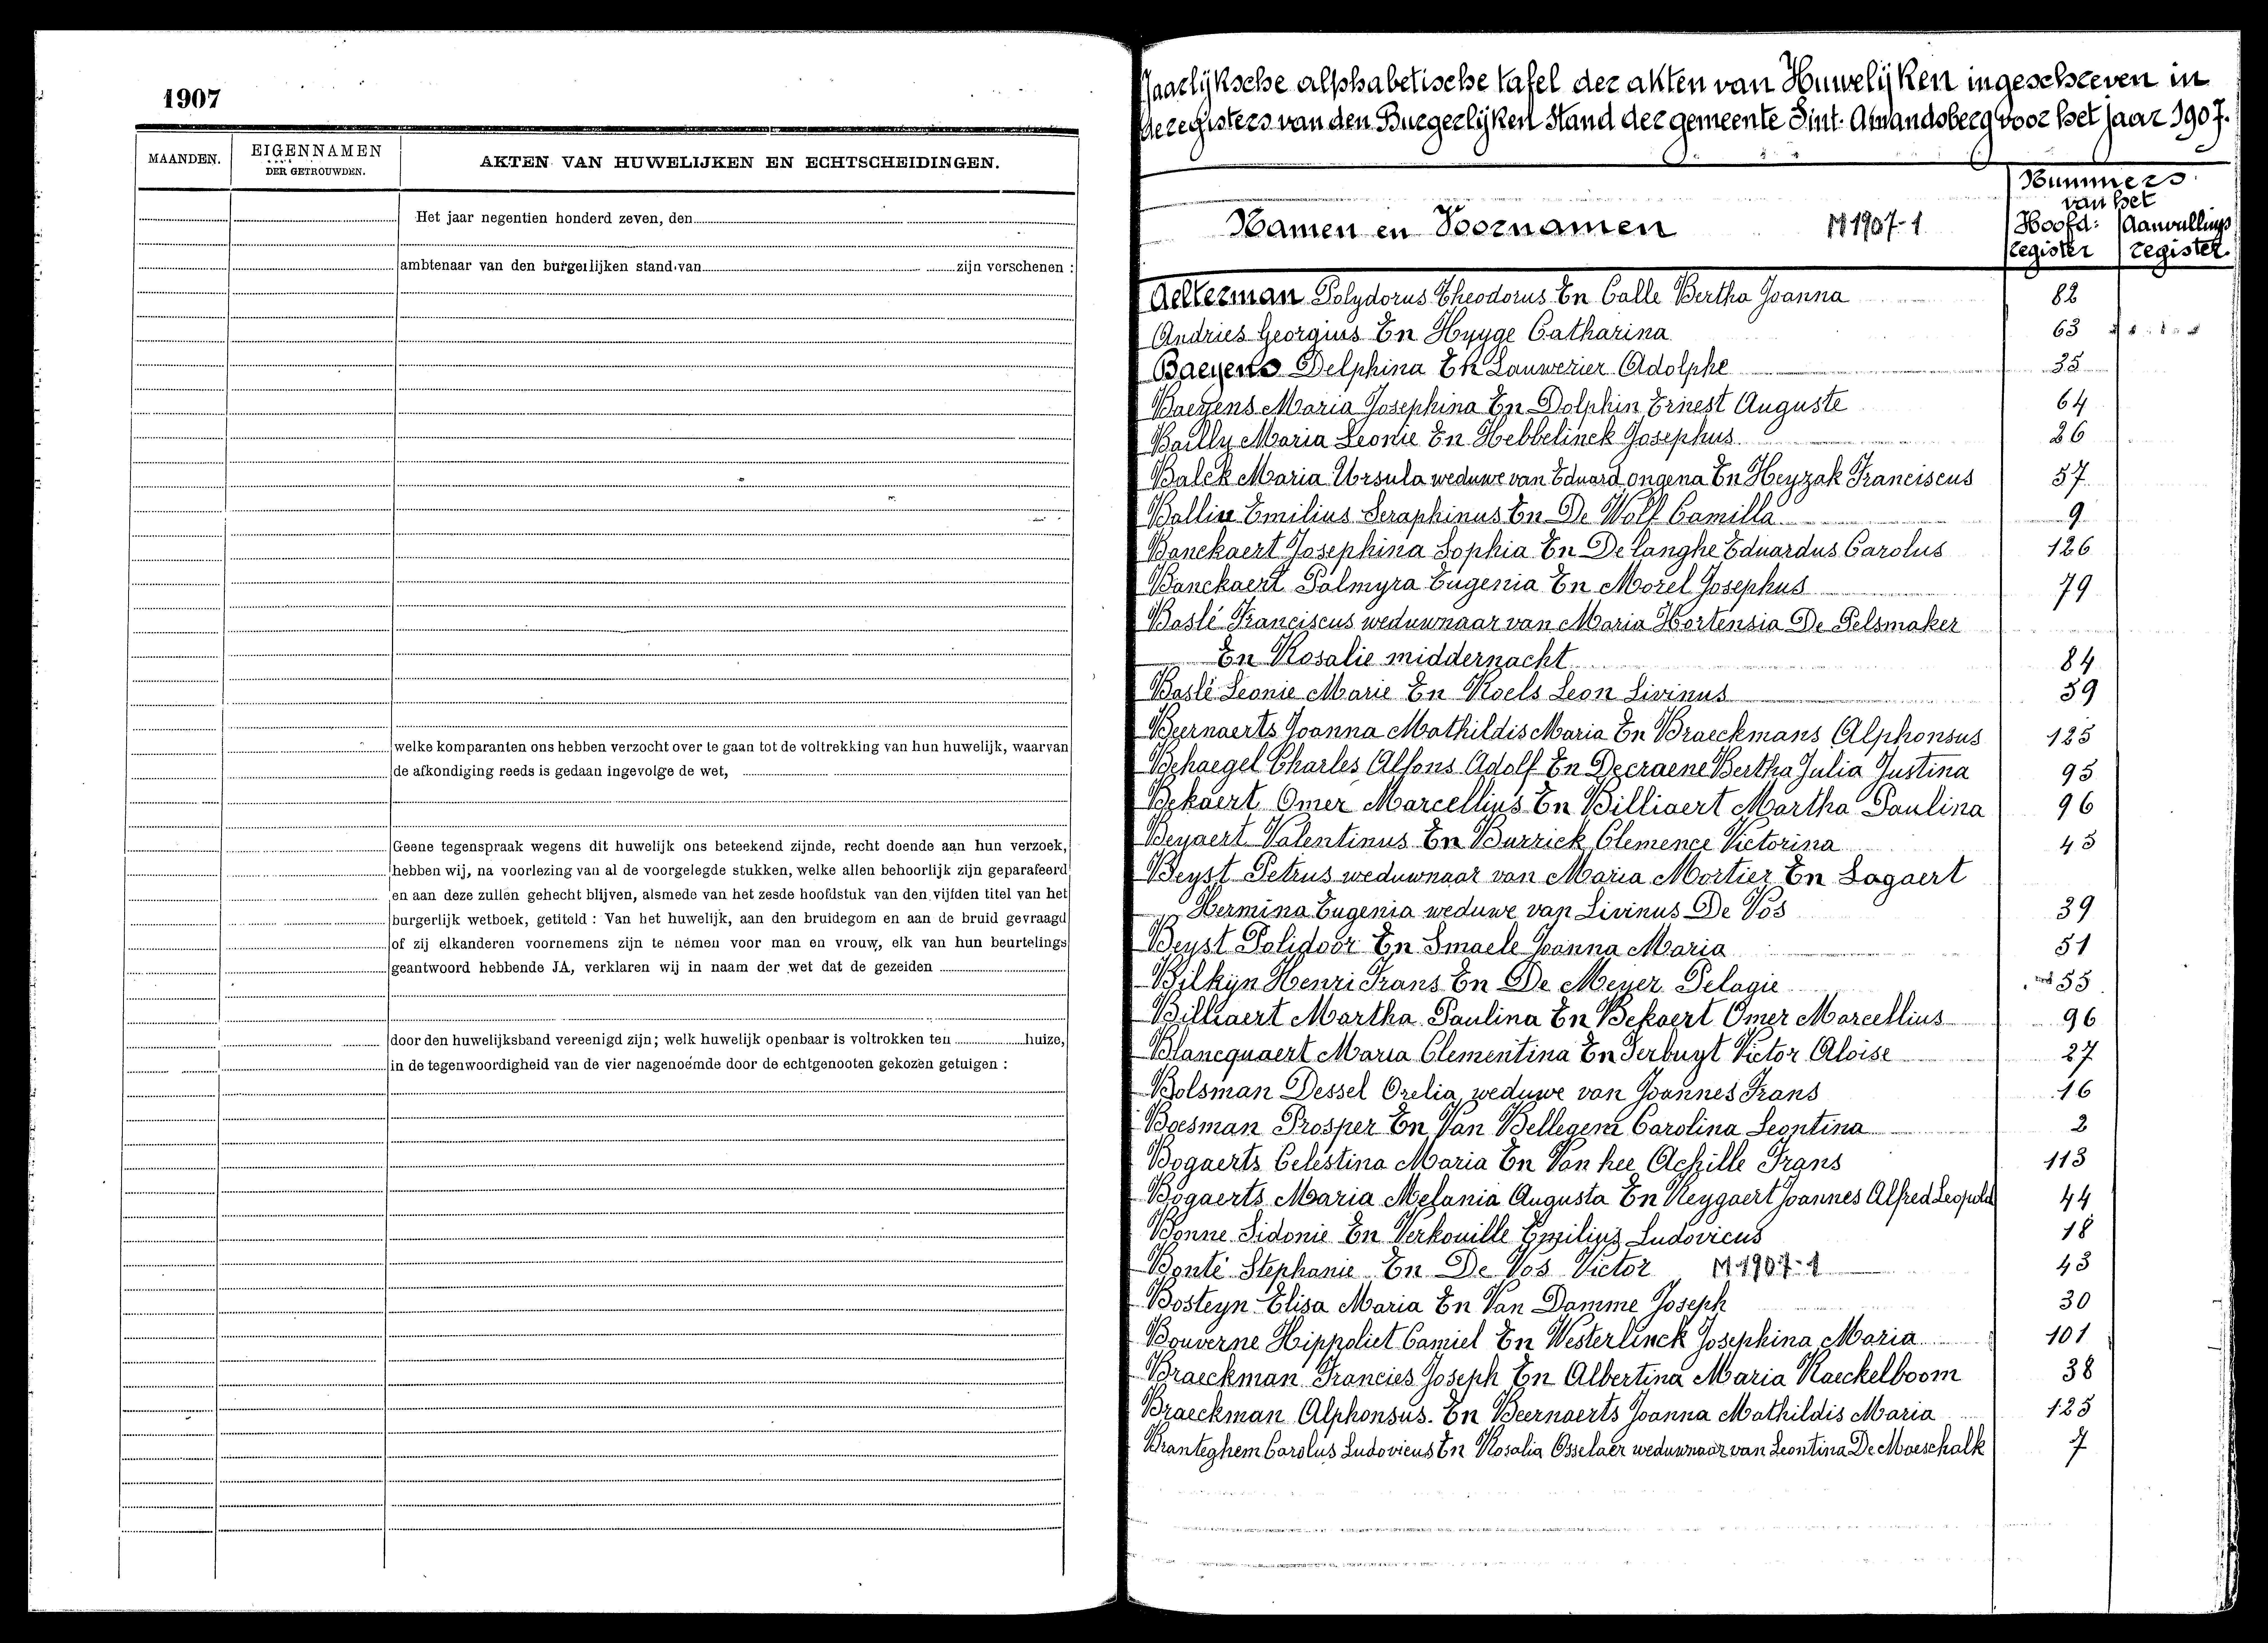 1907
MAANDEN.
EIGENNAMEN
DER GETROUWDEN.
AKTEN VAN HUWELIJKEN EN ECHTSCHEIDINGEN.
Het jaar negentien honderd zeven, den
ambtenaar van den burgerlijken stand van zijn verschenen :
welke komparanten ons hebben verzocht over te gaan tot de voltrekking van hun huwelijk, waarvan
de afkondiging reeds is gedaan ingevolge de wet,
Geene tegenspraak wegens dit huwelijk ons beteekend zijnde, recht doende aan hun verzoek,
hebben wij, na voorlezing van al de voorgelegde stukken, welke allen behoorlijk zijn geparafeerd
en aan deze zullen gehecht blijven, alsmede van het zesde hoofdstuk van den vijfden titel van het
burgerlijk wetboek, getiteld : Van het huwelijk, aan den bruidegom en aan de bruid gevraagd
of zij elkanderen voornemens zijn te nemen voor man en vrouw, elk van hun beurtelings
geantwoord hebbende JA, verklaren wij in naam der wet dat de gezeiden
door den huwelijksband vereenigd zijn; welk huwelijk openbaar is voltrokken ten huize,
in de tegenwoordigheid van de vier nagenoemde door de echtgenooten gekozen getuigen :
Jaarlijksche alphabetische tafel der akten van Huwelijken ingeschreven in
de registers van den Burgerlijken Stand der gemeente Sint-Amandsberg voor het jaar 1907.
Namen en Voornamen M 1907-1
Nummers
van het
Hoofd: Aanvullings
register register
Aelterman Polydorus Theodorus En Calle Bertha Joanna 82
Andries Georgius En Hygge Catharina 63
Baeyens Delphina En Lauwerier Adolphe 35
Baeyens Maria Josephina En Dolphin Ernest Auguste 64
Bailly Maria Leonie En Hebbelinck Josephus 26
Balck Maria Ursula weduwe van Eduard ongena En Heyzak Franciscus 57
Ballin Emilius Seraphinus En De Wolf Camilla 9
Banckaert Josephina Sophia En De langhe Eduardus Carolus 126
Banckaert Palmyra Eugenia En Morel Josephus 79
Baslé Franciscus weduwnaar van Maria Hortensia De Pelsmaker
En Rosalie middernacht 84
Baslé Leonie Marie En Roels Leon Livinus 59
Beernaerts Joanna Mathildis Maria En Braeckmans Alphonsus 125
Behaegel Charles Alfons Adolf En Decraene Bertha Julia Justina 95
Bekaert Omer Marcellius En Billiaert Martha Paulina 96
Beyaert Valentinus En Burrick Clemence Victorina 45
Beyst Petrus weduwnaar van Maria Mortier En Lagaert
Hermina Eugenia weduwe van Livinus De Vos 39
Beyst Polidoor En Smaele Joanna Maria 51
Bilkyn Henri Frans En De Meyer Pelagie 55
Billiaert Martha Paulina En Bekaert Omer Marcellius 96
Blancquaert Maria Clementina En Terbuyt Victor Aloise 27
Bolsman Dessel Orelia weduwe van Joannes Frans 16
Boesman Prosper En Van Bellegem Carolina Leontina 2
Bogaerts Celestina Maria En Van hee Achille Frans 113
Bogaerts Maria Melania Augusta En Reygaert Joannes Alfred Leopold 44
Bonne Sidonie En Verkouille Emilius Ludovicus 18
Bonté Stephanie En De Vos Victor M 1907-1 43
Bosteyn Elisa Maria En Van Damme Joseph 30
Bouverne Hippoliet Camiel En Westerlinck Josephina Maria 101
Braeckman Francies Joseph En Albertina Maria Raeckelboom 38
Braeckman Alphonsus. En Beernaerts Joanna Mathildis Maria 125
Branteghem Carolus Ludovicus En Rosalia Osselaer weduwnaar van Leontina De Moeschalk 7